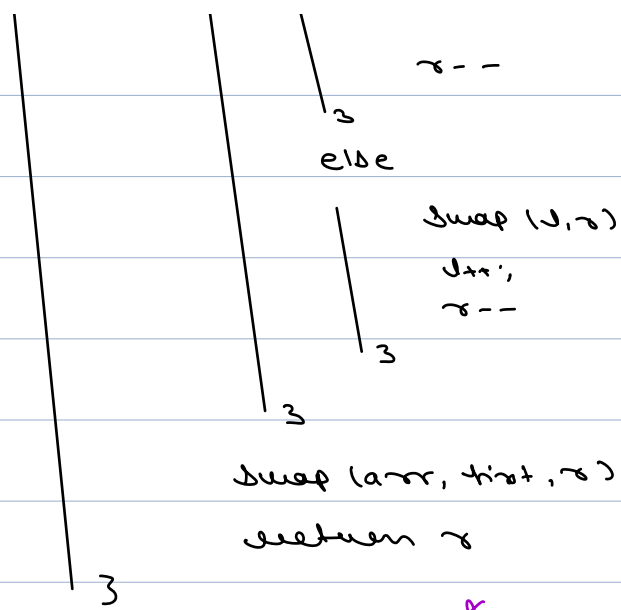 r--
}
else
swap (l, r)
l++;
r--
}
}
swap (arr, first, r)
return r
}